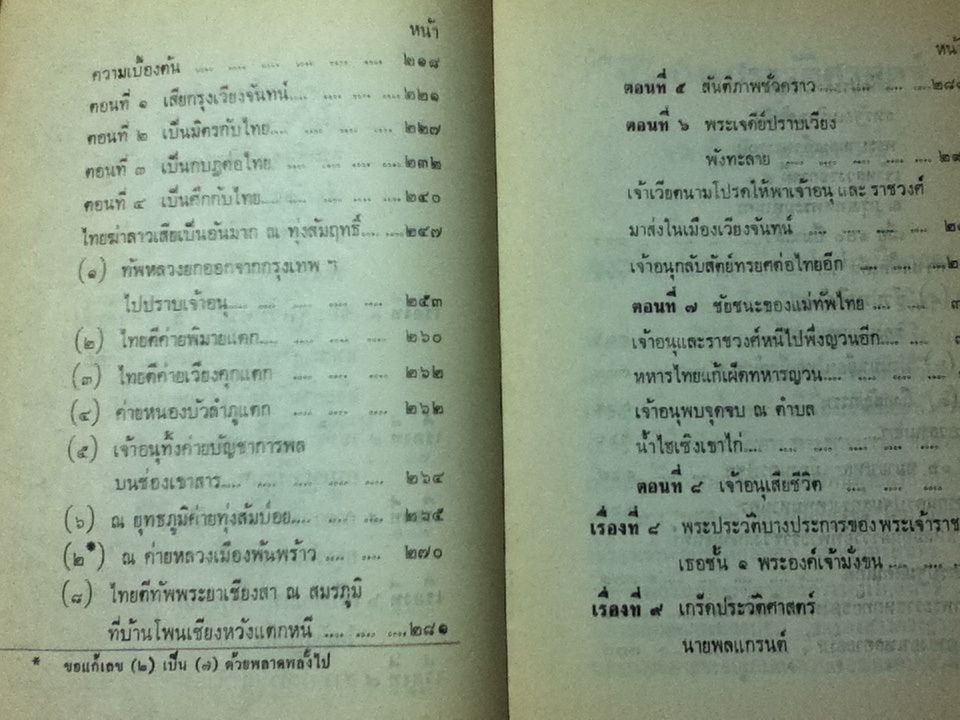 หน้า
ความเบื้องต้น .... .... .... .... .... .... ๒๑๘
ตอนที่ ๑ เสียกรุงเวียงจันทน์.... .... .... .... ๒๒๑
ตอนที่ ๒ เป็นมิตรกับไทย.... .... .... .... ๒๒๗
ตอนที่ ๓ เป็นกบฏต่อไทย .... .... .... .... ๒๓๒
ตอนที่ ๔ เป็นศึกกับไทย.... .... .... .... ๒๔๐
ไทยฆ่าลาวเสียเป็นอันมาก ณ ทุ่งสัมฤทธิ์.... .... ๒๔๗
(๑) ทัพหลวงยกออกจากกรุงเทพ ฯ
ไปปราบเจ้าอนุ.... .... .... .... .... ๒๕๓
(๒) ไทยตีค่ายพิมายแตก.... .... .... .... ๒๖๐
(๓) ไทยตีค่ายเวียงคุกแตก .... .... .... ๒๖๒
(๔) ค่ายหนองบัวลำภูแตก .... .... .... .... ๒๖๒
(๕) เจ้าอนุทิ้งค่ายบัญชาการพล
บนช่องเขาสาร.... .... .... .... .... ๒๖๔
(๖) ณ ยุทธภูมิค่ายทุ่งสัมป่อย.... .... .... ๒๖๕
(๒*) ณ ค่ายหลวงเมืองพันพร้าว .... .... ๒๗๐
(๘) ไทยตีทัพพระยาเชียงสา ณ สมรภูมิ
ที่บ้านโพนเชียงหวังแตกหนี .... .... .... ๒๘๑
* ขอแก้เลข (๒) เป็น (๗) ด้วยพลาดพลั้งไป
ตอนที่ ๕ สันติภาพชั่วคราว .... .... ....
ตอนที่ ๖ พระเจดีย์ปราบเวียง
พังทะลาย .... .... .... .... ....
เจ้าเวียดนามโปรดให้พาเจ้าอนุ และ ราชวงศ์
มาส่งในเมืองเวียงจันทน์ .... .... .... ....
เจ้าอนุกลับสัตย์ทรยศต่อไทยอีก .... .... ....
ตอนที่ ๗ ชัยชนะของแม่ทัพไทย .... ....
เจ้าอนุและราชวงศ์หนีไปพึ่งญวนอีก.... ....
ทหารไทยแก้เผ็ดทหารญวน.... .... .... ....
เจ้าอนุพบจุดจบ ณ ตำบล
น้ำไฮเชิงเขาไก่.... .... .... .... .... ....
ตอนที่ ๘ เจ้าอนุเสียชีวิต .... .... ....
เรื่องที่ ๘ พระประวัติบางประการของ พระเจ้าราช
เธอชั้น ๑ พระองค์เจ้ามั่งขน .... .... ....
เรื่องที่ ๙ เกร็ดประวัติศาสตร์
นายพลแกรนต์